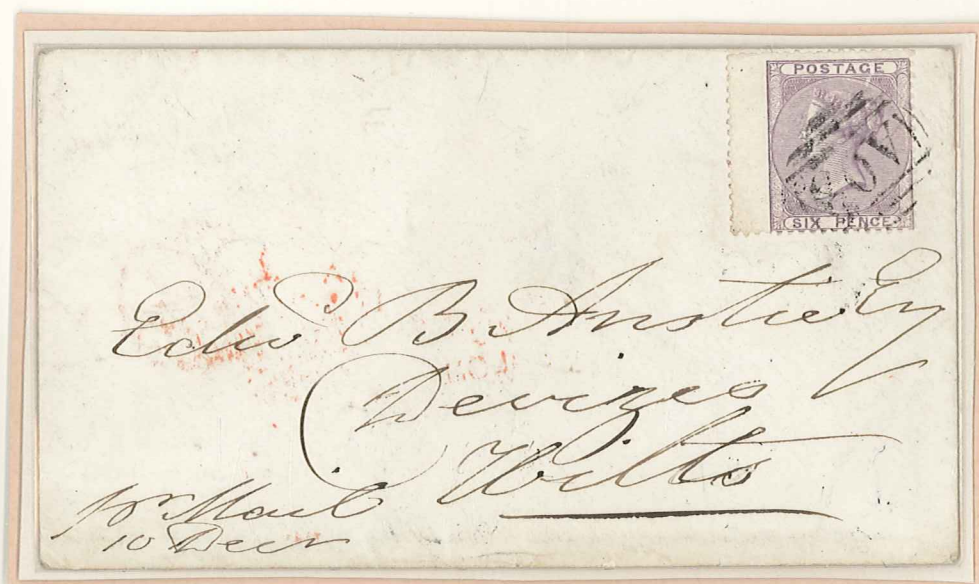 POSTAGE
SIX PENCE
Edwd B Anstie Esq
Devizes
Wilts
pr Mail
10 Decr